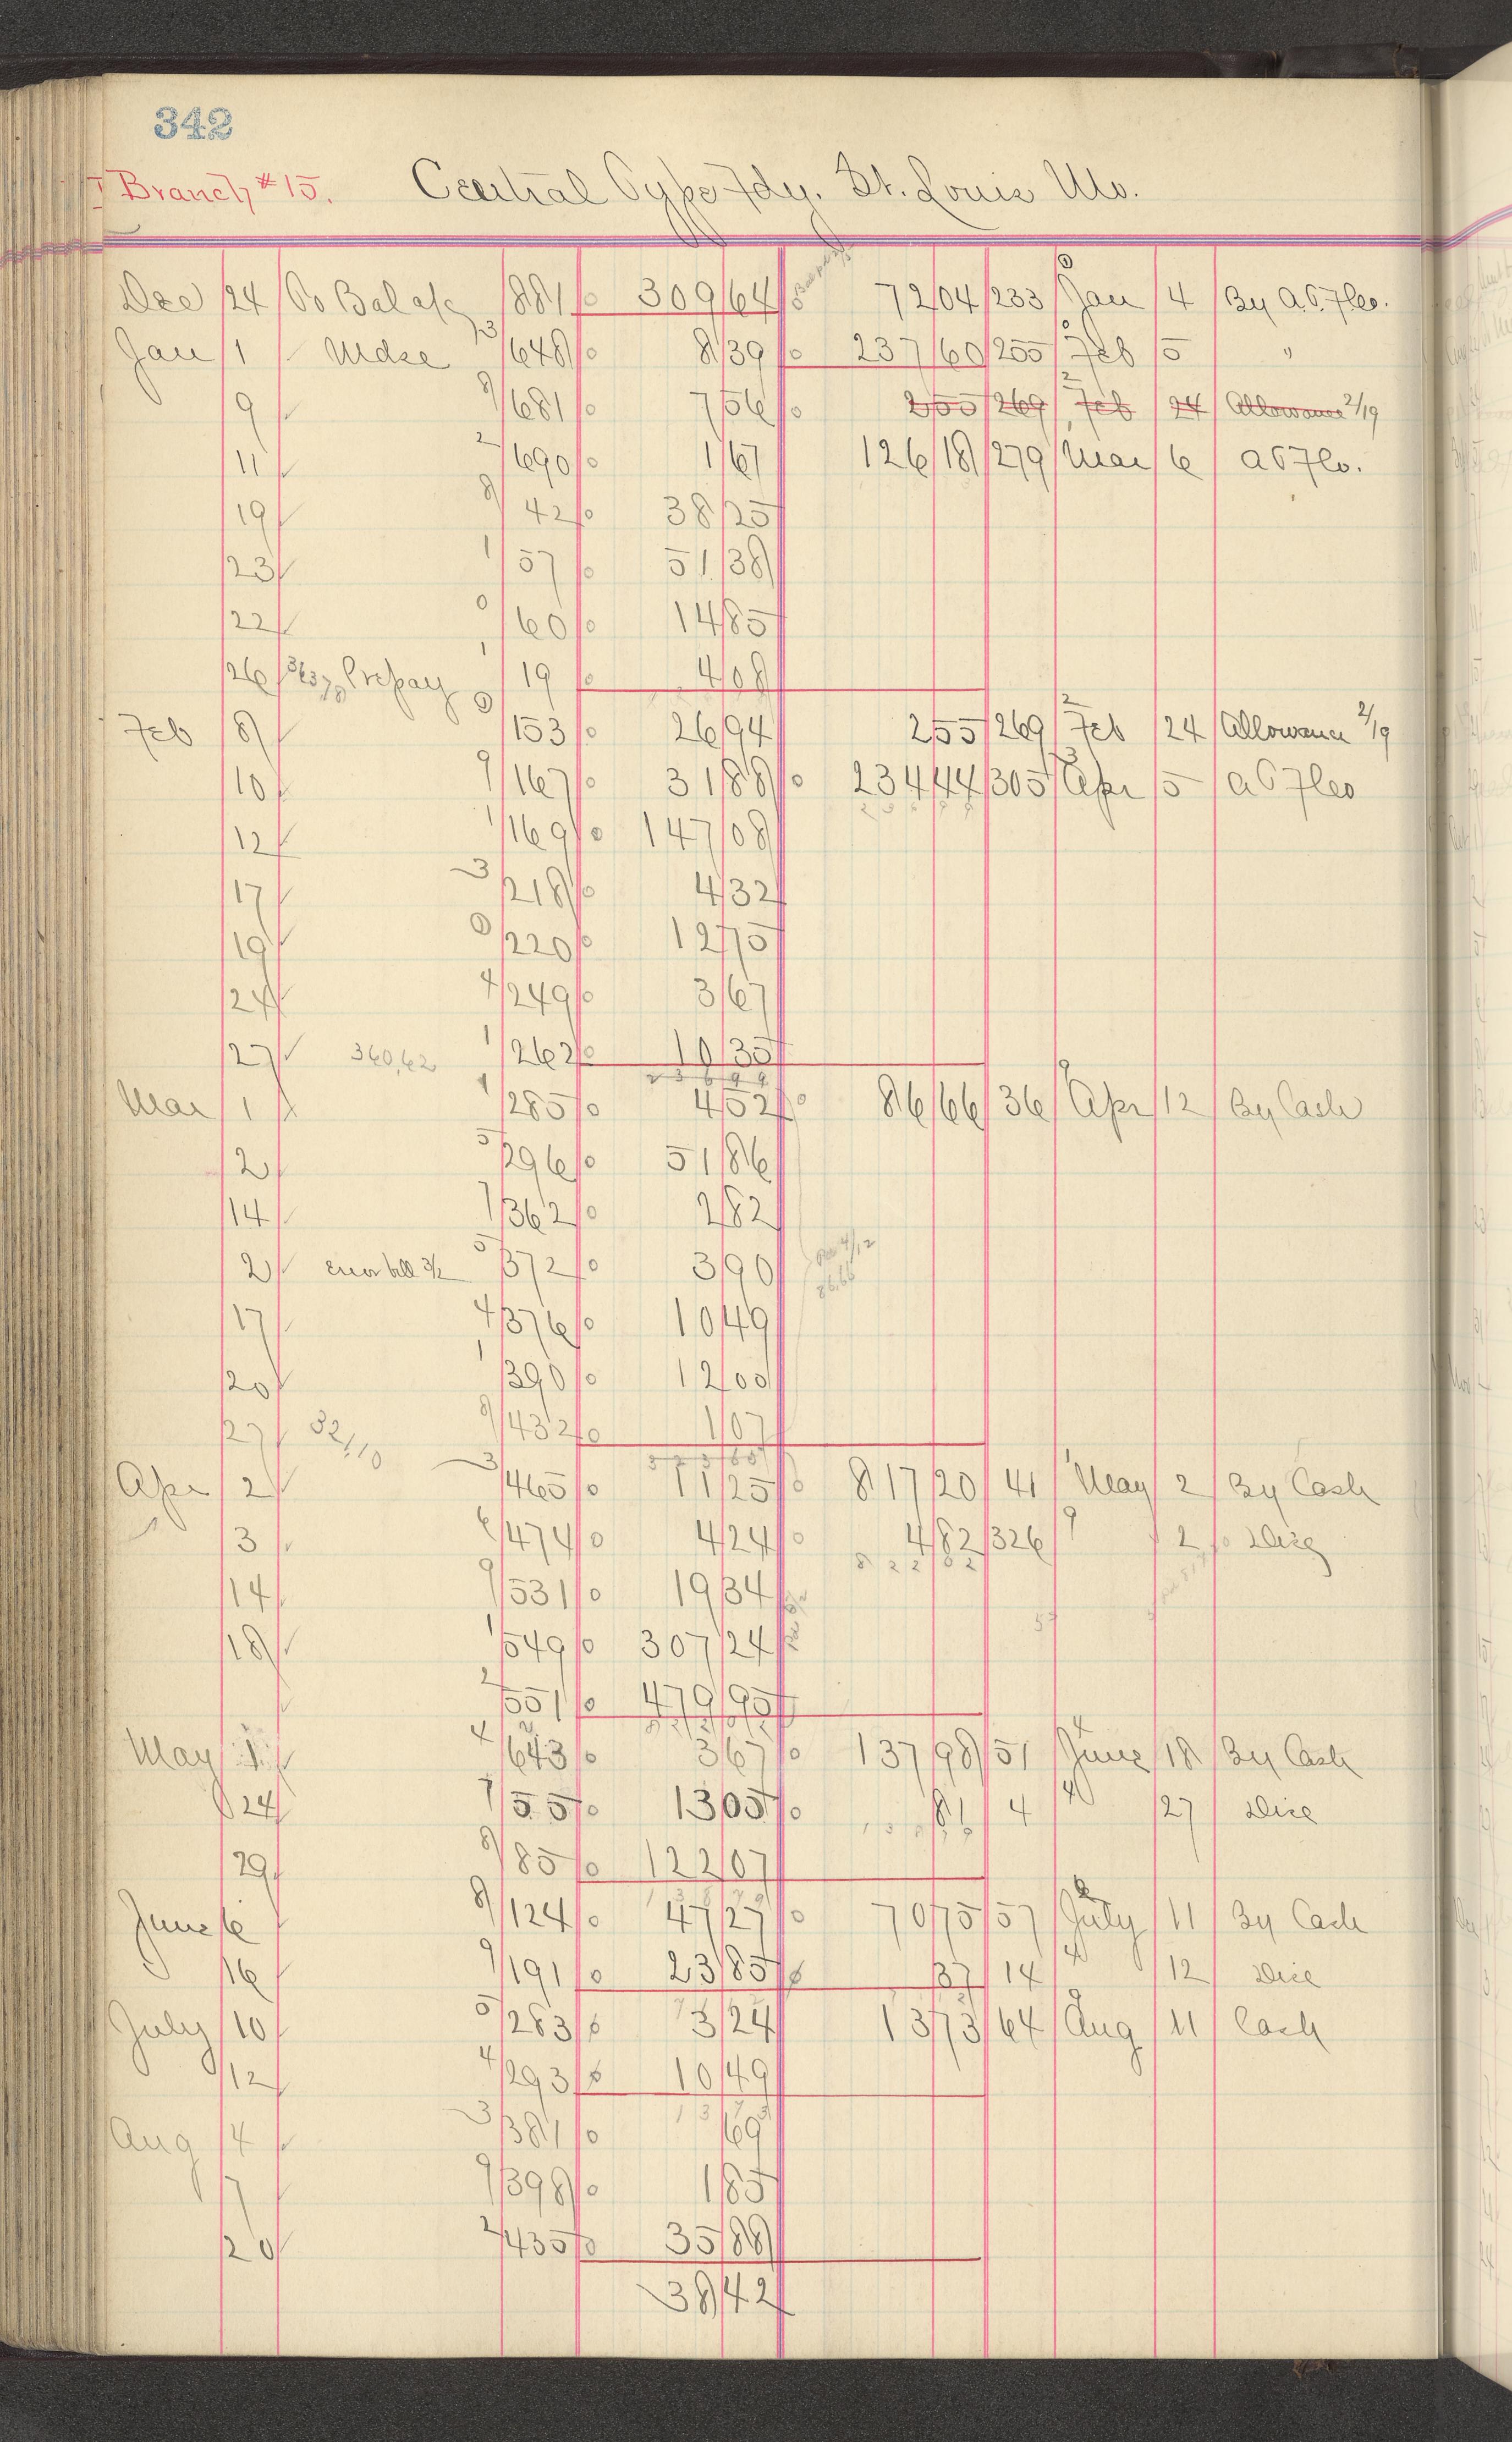 342
Branch #15. Central Type Fdy. St. Louis Mo.
Dec 24 To Bal a/c 881 309 64 72 04 233 Jan 4 By A.T.F.Co.
Jan 1 Mdse 3 648 8 39 237 60 255 Feb 5 "
9 8 681 7 56 2 55 269 Feb 24 Allowance 2/19
11 2 690 1 67 126 18 279 Mar 6 A T F Co.
19 8 42 38 25
23 1 57 51 38
22 0 60 14 85
26 Prepay 1 19 4 08
Feb 8 0 153 26 94 2 55 269 Feb 24 Allowance 2/19
10 9 167 31 88 234 44 305 Apr 5 A T F Co
12 1 169 147 08
17 3 218 4 32
19 0 220 12 75
24 4 249 3 67
27 340.62 1 262 10 35
236 99
Mar 1 1 285 4 52 86 66 36 Apr 12 By Cash
2 5 296 51 86
14 7 362 2 82
2 Error bill 3/2 5 372 3 90
17 4 376 10 49
20 1 390 12 00
27 32,10 8 432 1 07
Apr 2 3 465 11 25 817 20 41 May 2 By Cash
3 6 474 4 24 4 82 326 9 2 Disc
822 02
14 9 531 19 34
18 1 549 307 24
2 551 479 95
May 1 4 643 3 67 137 98 51 June 18 By Cash
24 7 55 13 05 81 4 4 27 Disc
29 8 85 122 07
June 6 8 124 47 27 70 75 57 July 11 By Cash
16 9 191 23 85 37 14 4 12 Disc
July 10 5 283 3 24 13 73 64 Aug 11 Cash
12 4 293 10 49
13 73
Aug 4 3 381 69
7 9 398 1 85
20 2 435 35 88
38 42